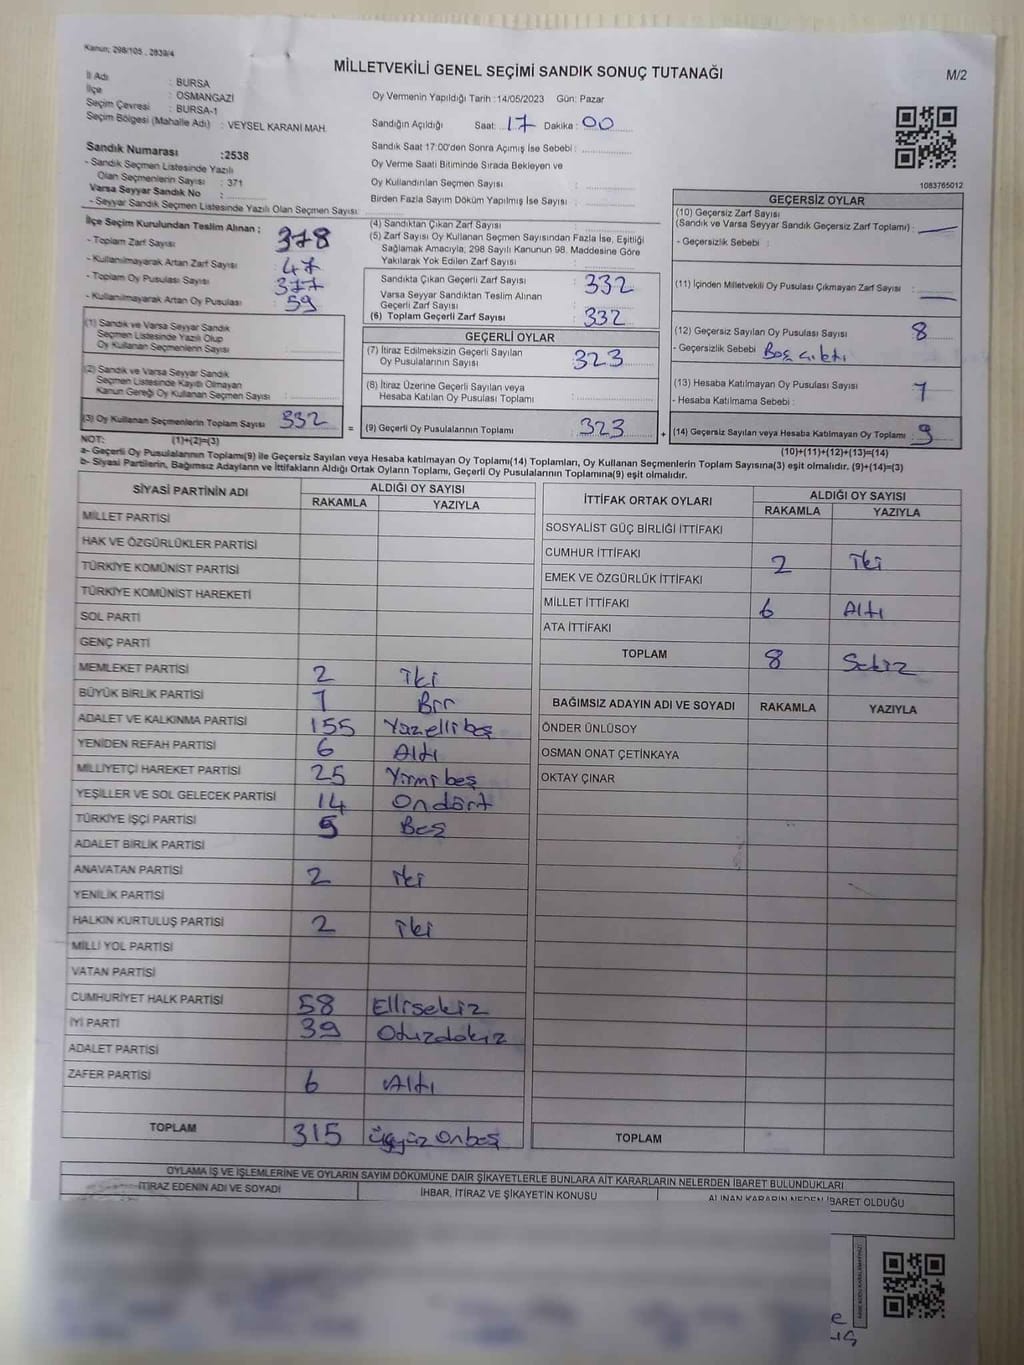 Kanun; 298/105 , 2839/4
MİLLETVEKİLİ GENEL SEÇİMİ SANDIK SONUÇ TUTANAĞI
M/2
İl Adı : BURSA
İlçe : OSMANGAZİ
Seçim Çevresi : BURSA-1
Seçim Bölgesi (Mahalle Adı) : VEYSEL KARANİ MAH.
Sandık Numarası :2538
- Sandık Seçmen Listesinde Yazılı
Olan Seçmenlerin Sayısı : 371
Varsa Seyyar Sandık No :
- Seyyar Sandık Seçmen Listesinde Yazılı Olan Seçmen Sayısı
Oy Vermenin Yapıldığı Tarih :14/05/2023 Gün: Pazar
Sandığın Açıldığı Saat: 17 Dakika : 00
Sandık Saat 17:00'den Sonra Açımış İse Sebebi :
Oy Verme Saati Bitiminde Sırada Bekleyen ve
Oy Kullandırılan Seçmen Sayısı :
Birden Fazla Sayım Döküm Yapılmış İse Sayısı :
1083765012
İlçe Seçim Kurulundan Teslim Alınan ;
- Toplam Zarf Sayısı : 378
- Kullanılmayarak Artan Zarf Sayısı : 47
- Toplam Oy Pusulası Sayısı : 377
- Kullanılmayarak Artan Oy Pusulası : 59
(1) Sandık ve Varsa Seyyar Sandık
Seçmen Listesinde Yazılı Olup
Oy Kullanan Seçmenlerin Sayısı :
(2) Sandık ve Varsa Seyyar Sandık
Seçmen Listesinde Kayıtlı Olmayan
Kanun Gereği Oy Kullanan Seçmen Sayısı :
(3) Oy Kullanan Seçmenlerin Toplam Sayısı : 332
(4) Sandıktan Çıkan Zarf Sayısı :
(5) Zarf Sayısı Oy Kullanan Seçmen Sayısından Fazla İse, Eşitliği
Sağlamak Amacıyla; 298 Sayılı Kanunun 98. Maddesine Göre
Yakılarak Yok Edilen Zarf Sayısı :
Sandıkta Çıkan Geçerli Zarf Sayısı : 332
Varsa Seyyar Sandıktan Teslim Alınan
Geçerli Zarf Sayısı :
(6) Toplam Geçerli Zarf Sayısı : 332
GEÇERLİ OYLAR
(7) İtiraz Edilmeksizin Geçerli Sayılan
Oy Pusulalarının Sayısı : 323
(8) İtiraz Üzerine Geçerli Sayılan veya
Hesaba Katılan Oy Pusulası Toplamı :
= (9) Geçerli Oy Pusulalarının Toplamı : 323
GEÇERSİZ OYLAR
(10) Geçersiz Zarf Sayısı
(Sandık ve Varsa Seyyar Sandık Geçersiz Zarf Toplamı) : —
- Geçersizlik Sebebi :
(11) İçinden Milletvekili Oy Pusulası Çıkmayan Zarf Sayısı : —
(12) Geçersiz Sayılan Oy Pusulası Sayısı : 8
- Geçersizlik Sebebi : Boş çıktı
(13) Hesaba Katılmayan Oy Pusulası Sayısı : 1
- Hesaba Katılmama Sebebi :
+ (14) Geçersiz Sayılan veya Hesaba Katılmayan Oy Toplamı : 9
NOT: (1)+(2)=(3)
(10)+(11)+(12)+(13)=(14)
a- Geçerli Oy Pusulaları Toplamı(9) ile Geçersiz Sayılan veya Hesaba katılmayan Oy Toplamı(14) Toplamları, Oy Kullanan Seçmenlerin Toplam Sayısına(3) eşit olmalıdır. (9)+(14)=(3)
b- Siyasi Partilerin, Bağımsız Adayların ve İttifakların Aldığı Ortak Oyların Toplamı, Geçerli Oy Pusulalarının Toplamına(9) eşit olmalıdır.
SİYASİ PARTİNİN ADI ALDIĞI OY SAYISI
RAKAMLA YAZIYLA
MİLLET PARTİSİ
HAK VE ÖZGÜRLÜKLER PARTİSİ
TÜRKİYE KOMÜNİST PARTİSİ
TÜRKİYE KOMÜNİST HAREKETİ
SOL PARTİ
GENÇ PARTİ
MEMLEKET PARTİSİ 2 iki
BÜYÜK BİRLİK PARTİSİ 1 Bir
ADALET VE KALKINMA PARTİSİ 155 Yüzellibeş
YENİDEN REFAH PARTİSİ 6 Altı
MİLLİYETÇİ HAREKET PARTİSİ 25 Yirmibeş
YEŞİLLER VE SOL GELECEK PARTİSİ 14 Ondört
TÜRKİYE İŞÇİ PARTİSİ 5 Beş
ADALET BİRLİK PARTİSİ
ANAVATAN PARTİSİ 2 iki
YENİLİK PARTİSİ
HALKIN KURTULUŞ PARTİSİ 2 iki
MİLLİ YOL PARTİSİ
VATAN PARTİSİ
CUMHURİYET HALK PARTİSİ 58 Ellisekiz
İYİ PARTİ 39 Otuzdokuz
ADALET PARTİSİ
ZAFER PARTİSİ 6 Altı
TOPLAM 315 üçyüz onbeş
İTTİFAK ORTAK OYLARI ALDIĞI OY SAYISI
RAKAMLA YAZIYLA
SOSYALİST GÜÇ BİRLİĞİ İTTİFAKI
CUMHUR İTTİFAKI 2 iki
EMEK VE ÖZGÜRLÜK İTTİFAKI
MİLLET İTTİFAKI 6 Altı
ATA İTTİFAKI
TOPLAM 8 Sekiz
BAĞIMSIZ ADAYIN ADI VE SOYADI RAKAMLA YAZIYLA
ÖNDER ÜNLÜSOY
OSMAN ONAT ÇETİNKAYA
OKTAY ÇINAR
TOPLAM
OYLAMA İŞ VE İŞLEMLERİNE VE OYLARIN SAYIM DÖKÜMÜNE DAİR ŞİKAYETLERLE BUNLARA AİT KARARLARIN NELERDEN İBARET BULUNDUKLARI
İTİRAZ EDENİN ADI VE SOYADI
İHBAR, İTİRAZ VE ŞİKAYETİN KONUSU
ALINAN KARARIN NEDEN İBARET OLDUĞU